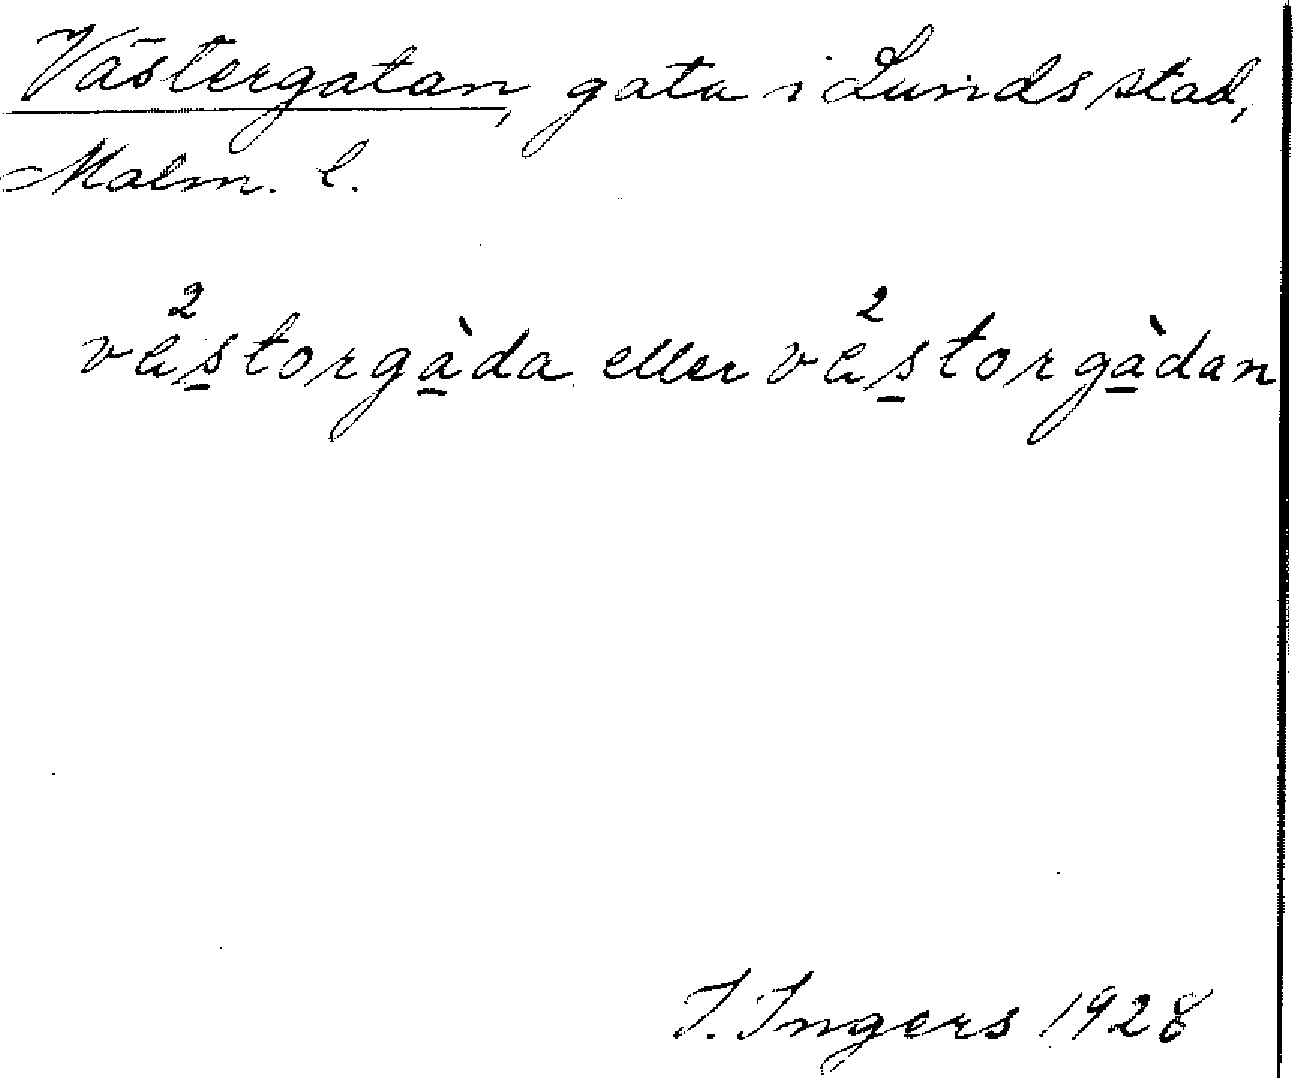 Västergatan, gata i Lunds stad,
Malm. l.
vä²storgàda eller vä²storgàdan
I. Ingers 1928